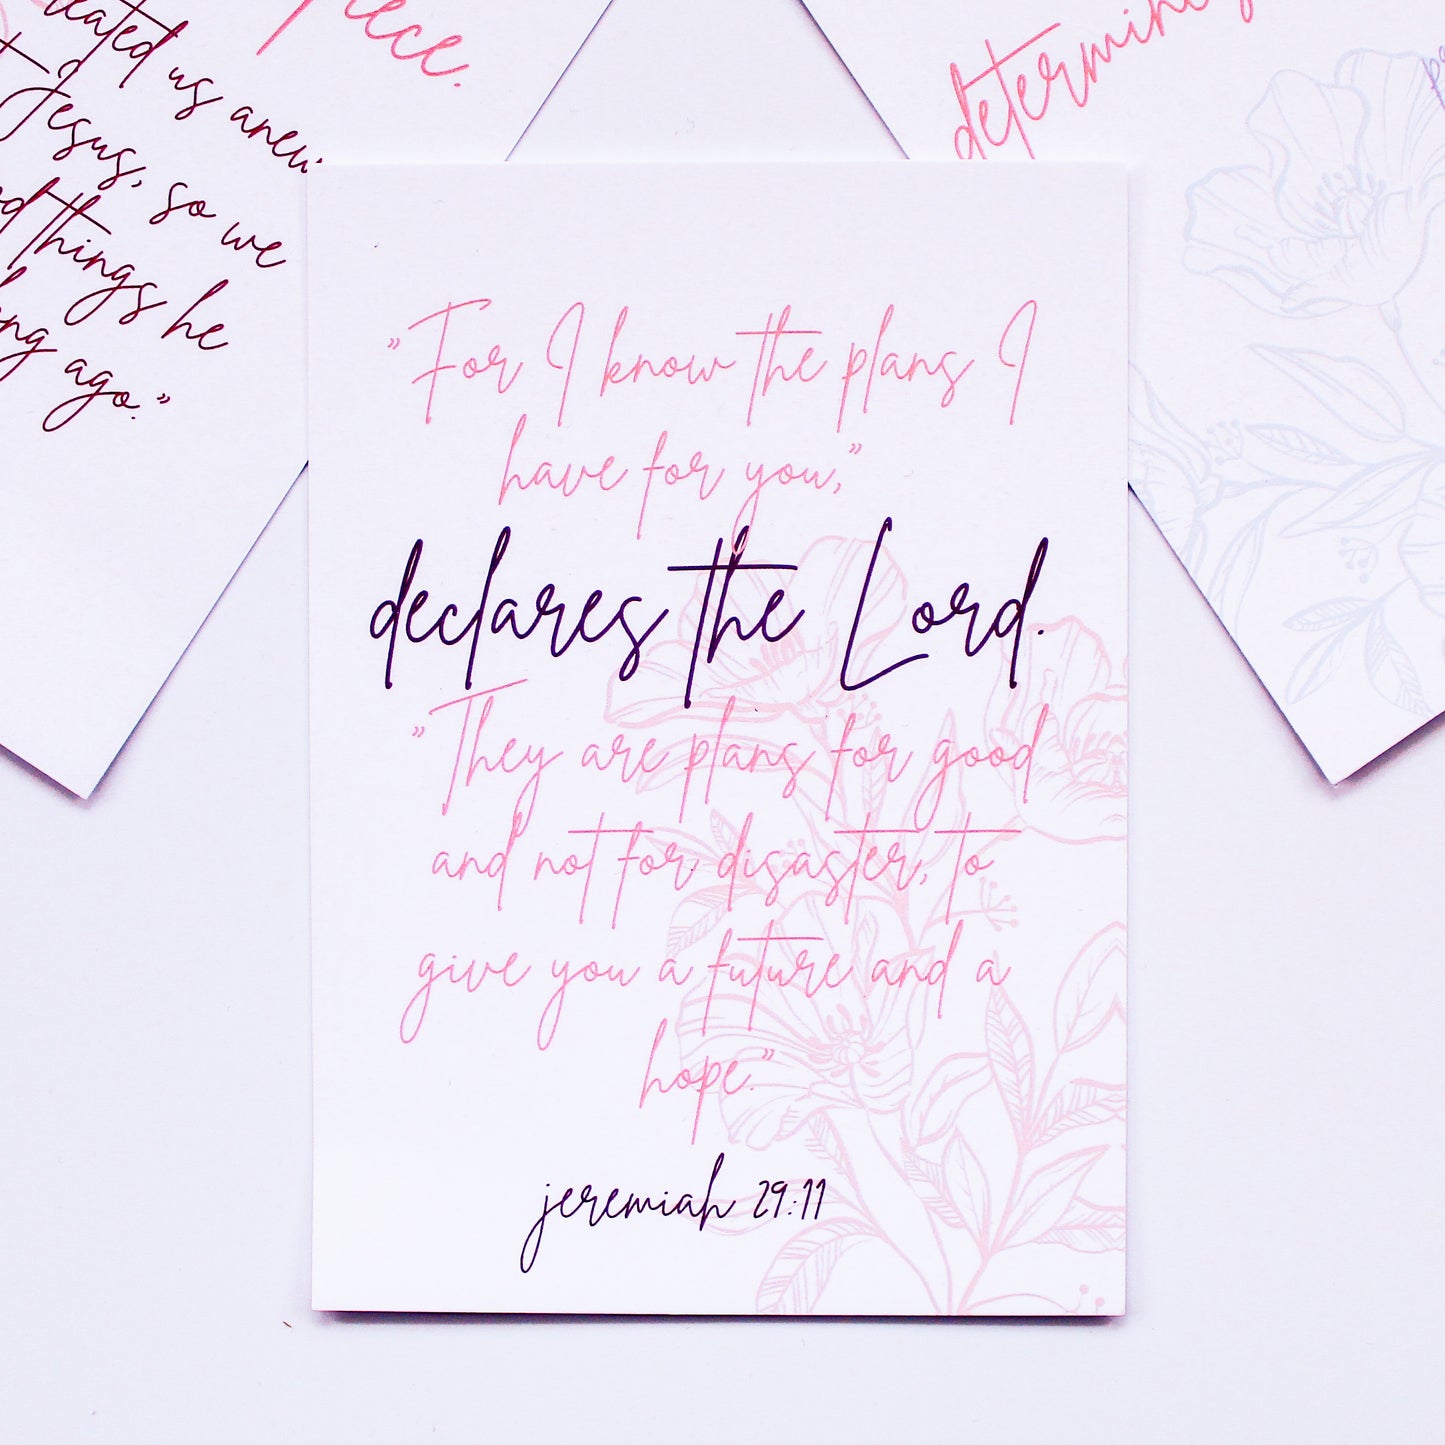 eated us anew
Jesus, so we
things he
ago."
iece.
"For I know the plans I
have for you,"
declares the Lord.
"They are plans for good
and not for disaster, to
give you a future and a
hope."
jeremiah 29:11